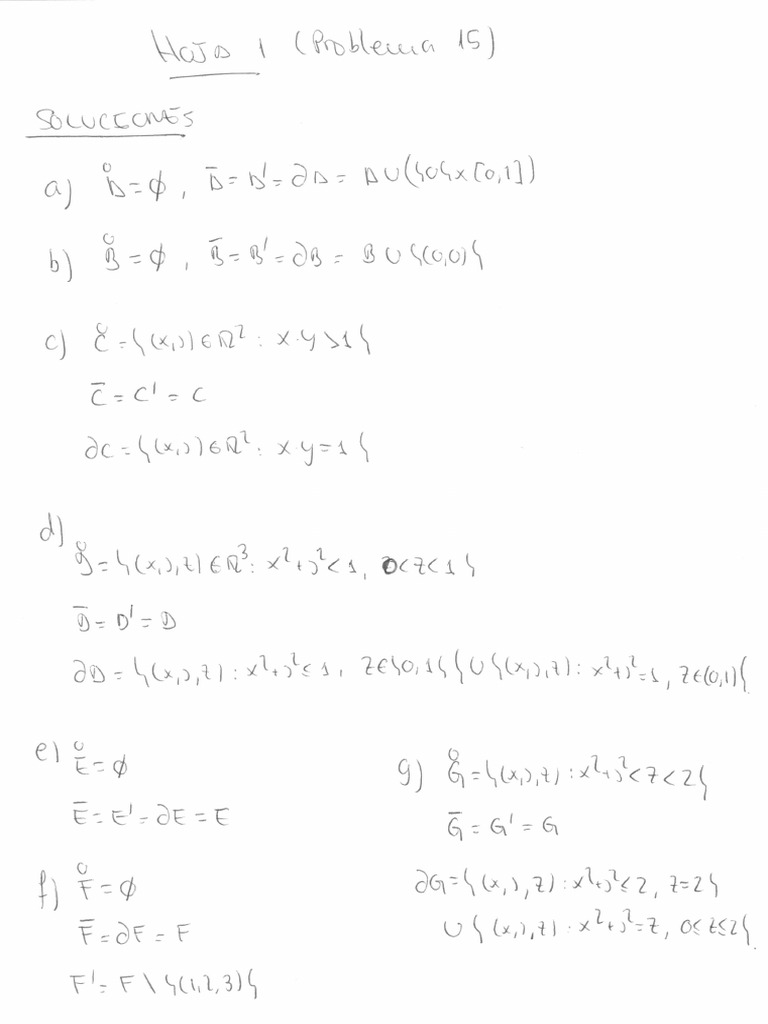 Hoja 1 (Problema 15)
SOLUCIONES
a) Å = ∅, Ā = A' = ∂A = A ∪ ({0} × [0,1])
b) B̊ = ∅, B̄ = B' = ∂B = B ∪ {(0,0)}
c) C̊ = {(x,y) ∈ ℝ² : x·y > 1}
C̄ = C' = C
∂C = {(x,y) ∈ ℝ² : x·y = 1}
d)
D̊ = {(x,y,z) ∈ ℝ³ : x²+y² < 1, 0 < z < 1}
D̄ = D' = D
∂D = {(x,y,z) : x²+y² ≤ 1, z ∈ {0,1}} ∪ {(x,y,z) : x²+y² = 1, z ∈ (0,1)}
e) E̊ = ∅
Ē = E' = ∂E = E
f) F̊ = ∅
F̄ = ∂F = F
F' = F \ {(1,2,3)}
g) G̊ = {(x,y,z) : x²+y² < z < 2}
Ḡ = G' = G
∂G = {(x,y,z) : x²+y² ≤ 2, z = 2}
∪ {(x,y,z) : x²+y² = z, 0 ≤ z ≤ 2}